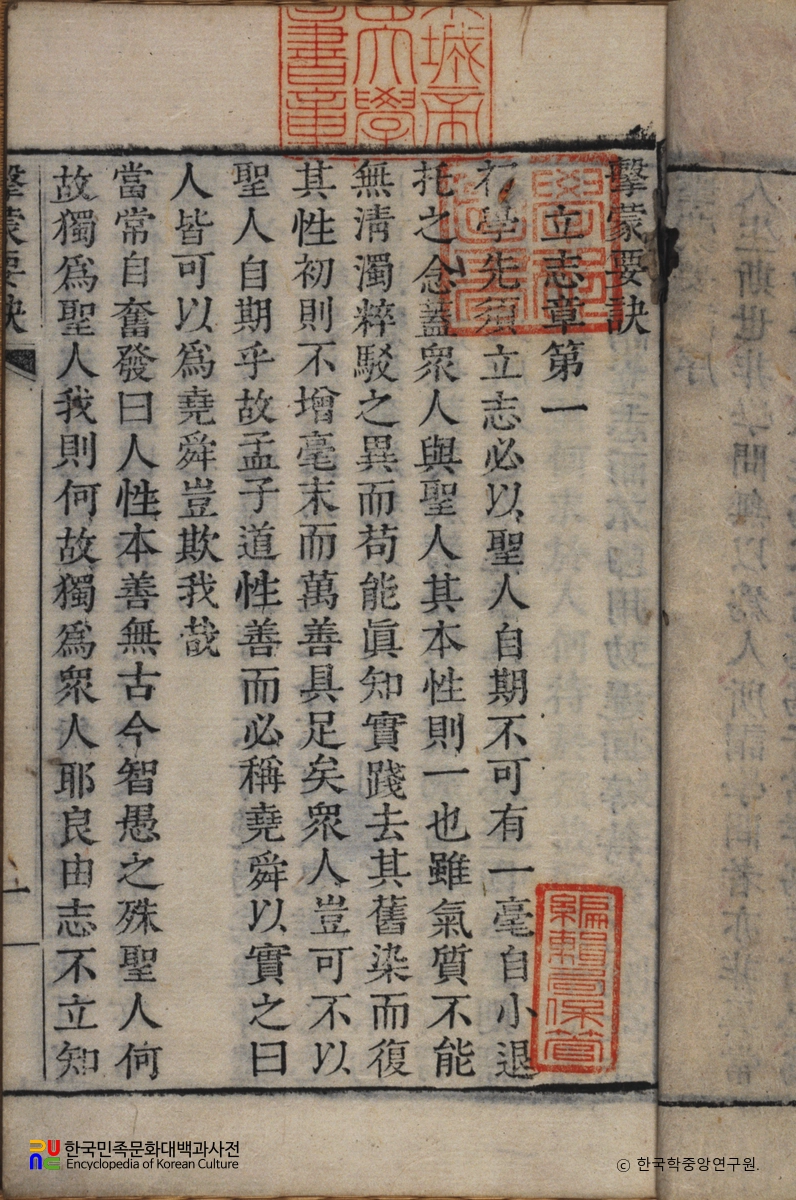 擊蒙要訣
立志章第一
初學先須立志必以聖人自期不可有一毫自小退
托之念蓋衆人與聖人其本性則一也雖氣質不能
無淸濁粹駁之異而苟能眞知實踐去其舊染而復
其性初則不增毫末而萬善具足矣衆人豈可不以
聖人自期乎故孟子道性善而必稱堯舜以實之曰
人皆可以爲堯舜豈欺我哉
當常自奮發曰人性本善無古今智愚之殊聖人何
故獨爲聖人我則何故獨爲衆人耶良由志不立知
擊蒙要訣
一
編輯局保管
한국민족문화대백과사전
Encyclopedia of Korean Culture
© 한국학중앙연구원.